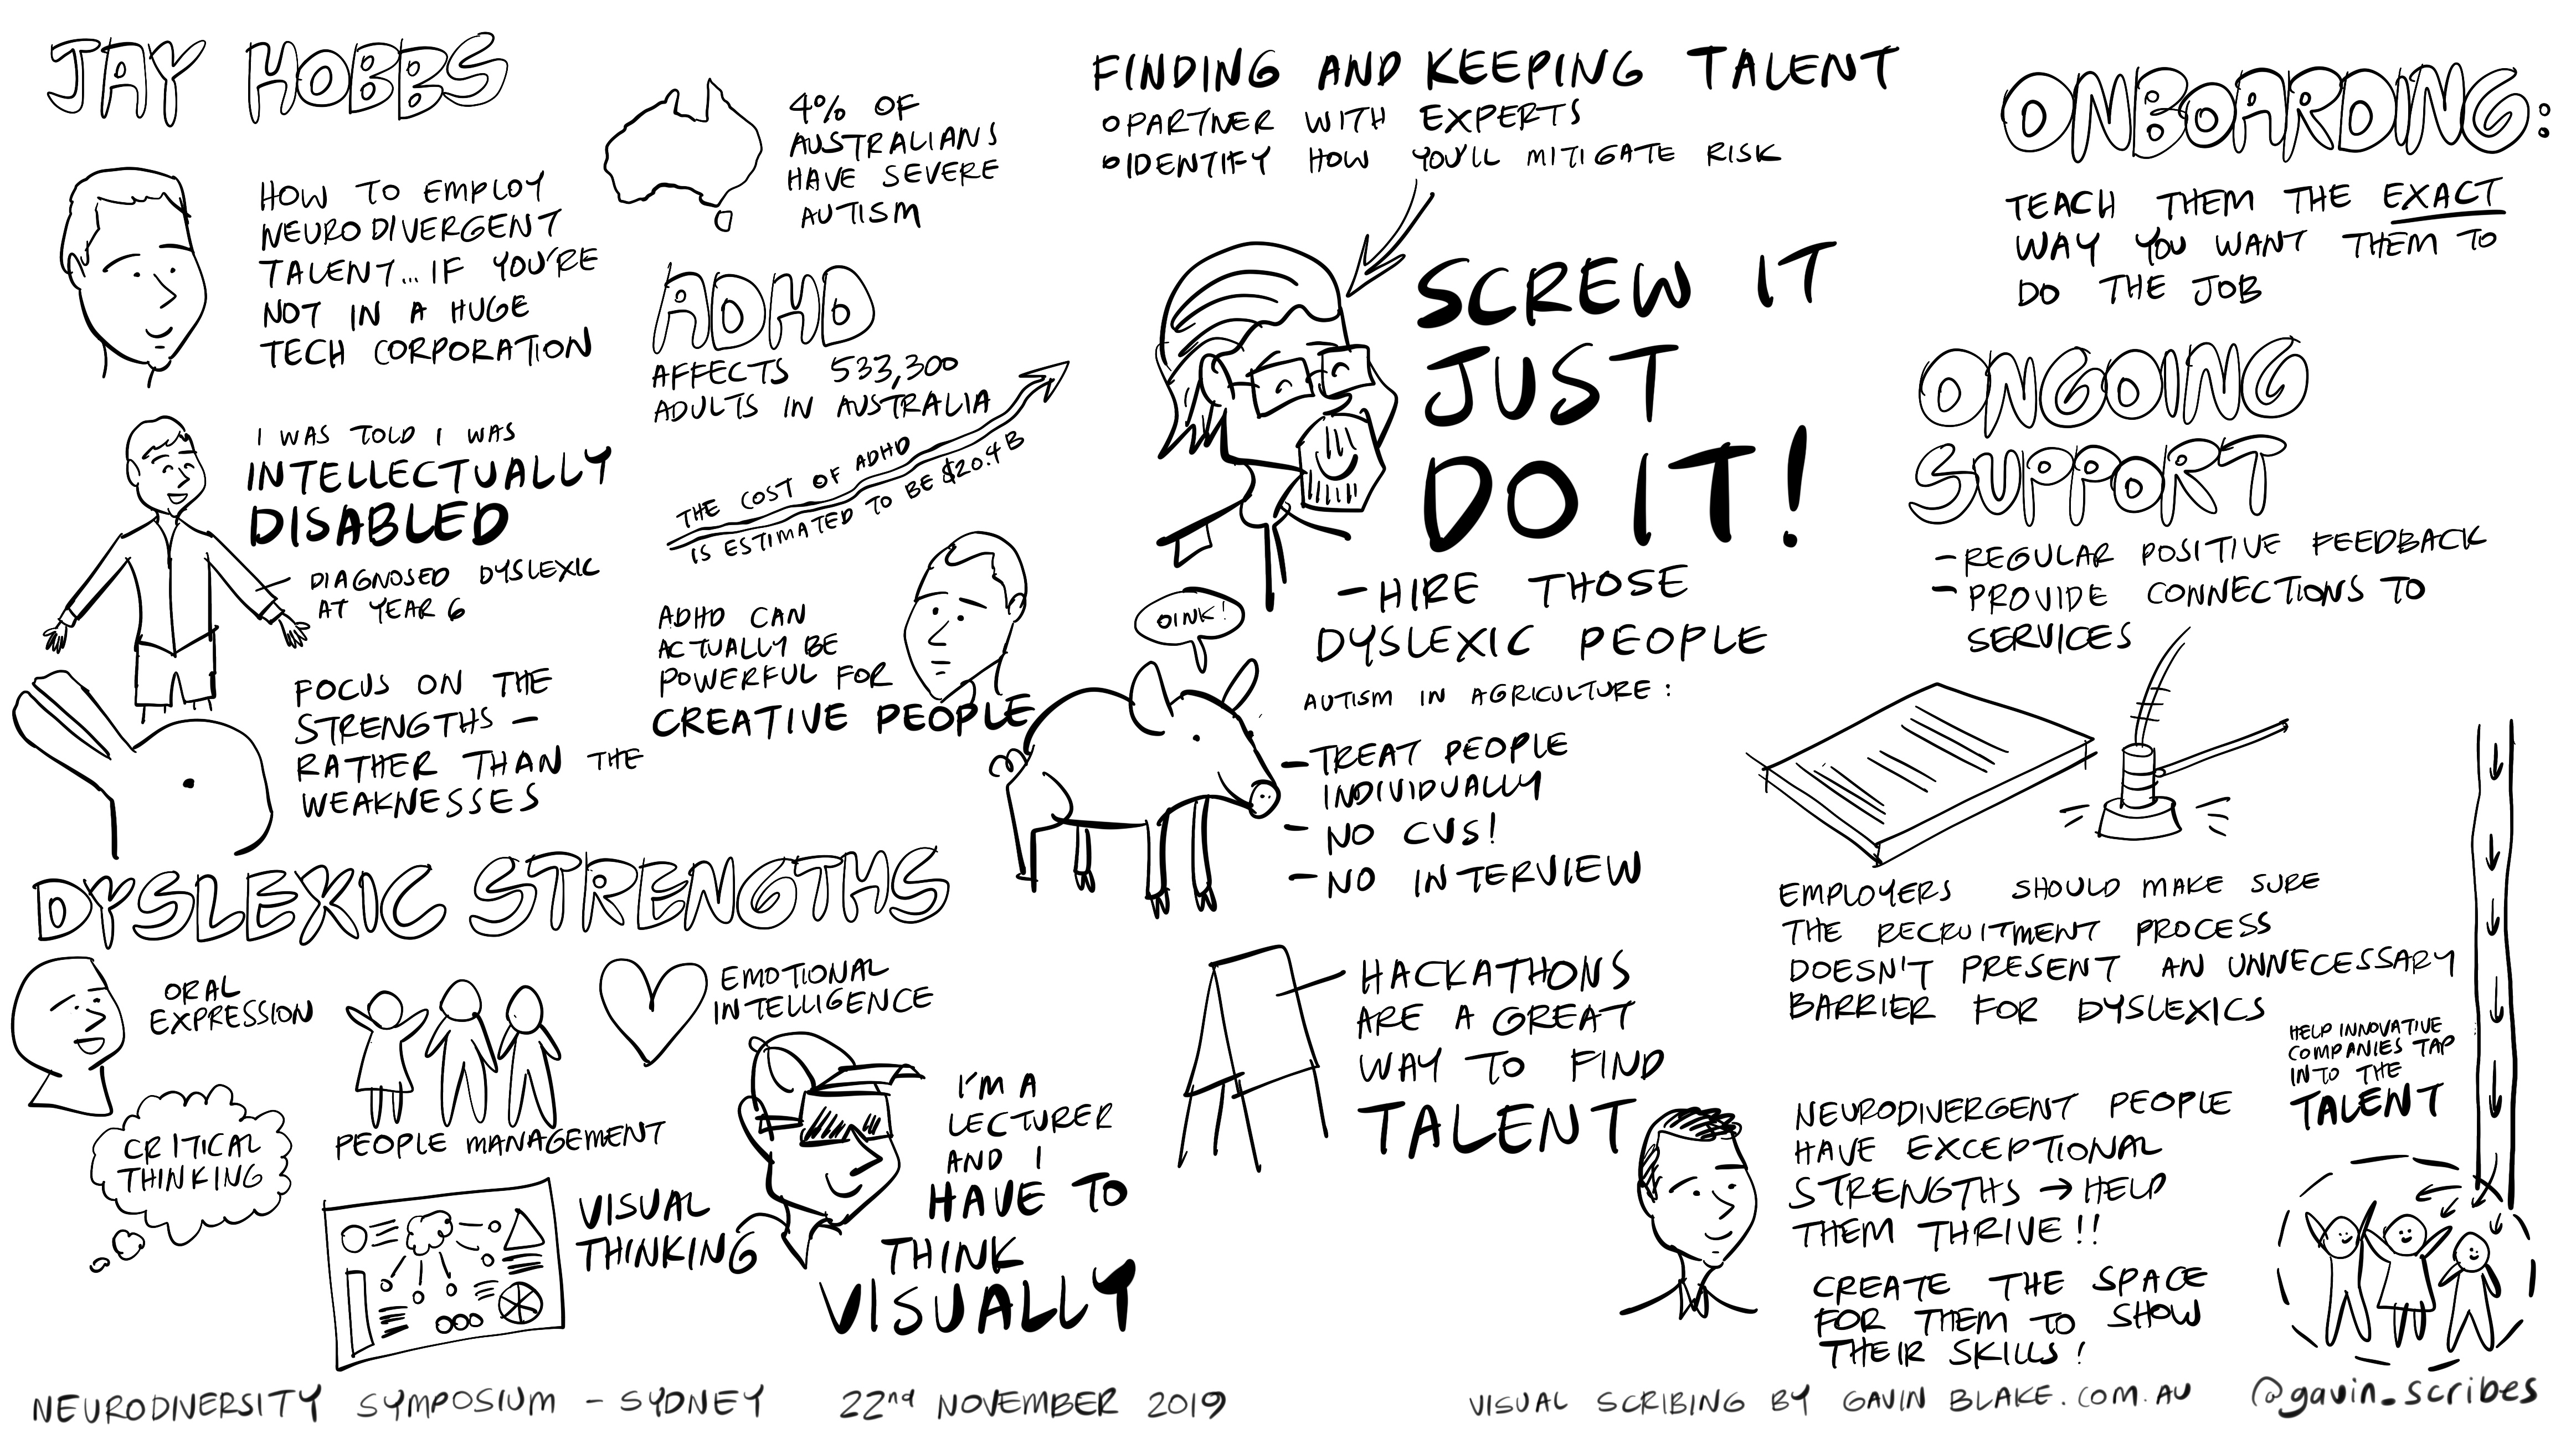 JAY HOBBS
HOW TO EMPLOY
NEURODIVERGENT
TALENT... IF YOU'RE
NOT IN A HUGE
TECH CORPORATION
I WAS TOLD I WAS
INTELLECTUALLY
DISABLED
DIAGNOSED DYSLEXIC
AT YEAR 6
FOCUS ON THE
STRENGTHS -
RATHER THAN THE
WEAKNESSES
4% OF
AUSTRALIANS
HAVE SEVERE
AUTISM
ADHD
AFFECTS 533,300
ADULTS IN AUSTRALIA
THE COST OF ADHD
IS ESTIMATED TO BE $20.4B
ADHD CAN
ACTUALLY BE
POWERFUL FOR
CREATIVE PEOPLE
DYSLEXIC STRENGTHS
ORAL
EXPRESSION
CRITICAL
THINKING
PEOPLE MANAGEMENT
EMOTIONAL
INTELLIGENCE
VISUAL
THINKING
I'M A
LECTURER
AND I
HAVE TO
THINK
VISUALLY
FINDING AND KEEPING TALENT
o PARTNER WITH EXPERTS
o IDENTIFY HOW YOU'LL MITIGATE RISK
SCREW IT
JUST
DO IT!
- HIRE THOSE
DYSLEXIC PEOPLE
OINK!
AUTISM IN AGRICULTURE:
- TREAT PEOPLE
INDIVIDUALLY
- NO CVS!
- NO INTERVIEW
HACKATHONS
ARE A GREAT
WAY TO FIND
TALENT
ONBOARDING:
TEACH THEM THE EXACT
WAY YOU WANT THEM TO
DO THE JOB
ONGOING
SUPPORT
- REGULAR POSITIVE FEEDBACK
- PROVIDE CONNECTIONS TO
SERVICES
EMPLOYERS SHOULD MAKE SURE
THE RECRUITMENT PROCESS
DOESN'T PRESENT AN UNNECESSARY
BARRIER FOR DYSLEXICS
HELP INNOVATIVE
COMPANIES TAP
INTO THE
TALENT
NEURODIVERGENT PEOPLE
HAVE EXCEPTIONAL
STRENGTHS → HELP
THEM THRIVE!!
CREATE THE SPACE
FOR THEM TO SHOW
THEIR SKILLS!
NEURODIVERSITY SYMPOSIUM - SYDNEY 22nd NOVEMBER 2019
VISUAL SCRIBING BY GAVIN BLAKE.COM.AU @gavin_scribes